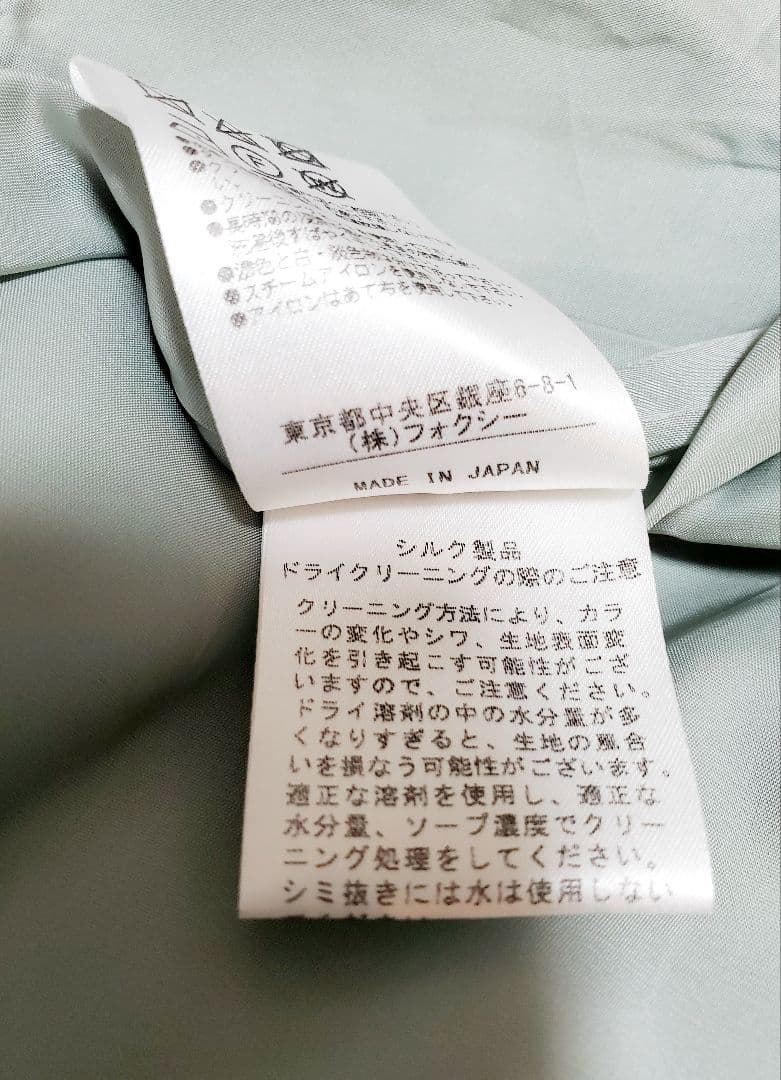 F
クリーニ
長時間の
濃色と白・淡色
スチームアイロンを使用
アイロンはあて布を使用してください
東京都中央区銀座6-8-1
(株)フォクシー
MADE IN JAPAN
シルク製品
ドライクリーニングの際のご注意
クリーニング方法により、カラ
ーの変化やシワ、生地表面変
化を引き起こす可能性がござ
いますので、ご注意ください。
ドライ溶剤の中の水分量が多
くなりすぎると、生地の風合
いを損なう可能性がございます。
適正な溶剤を使用し、適正な
水分量、ソープ濃度でクリー
ニング処理をしてください。
シミ抜きには水は使用しない